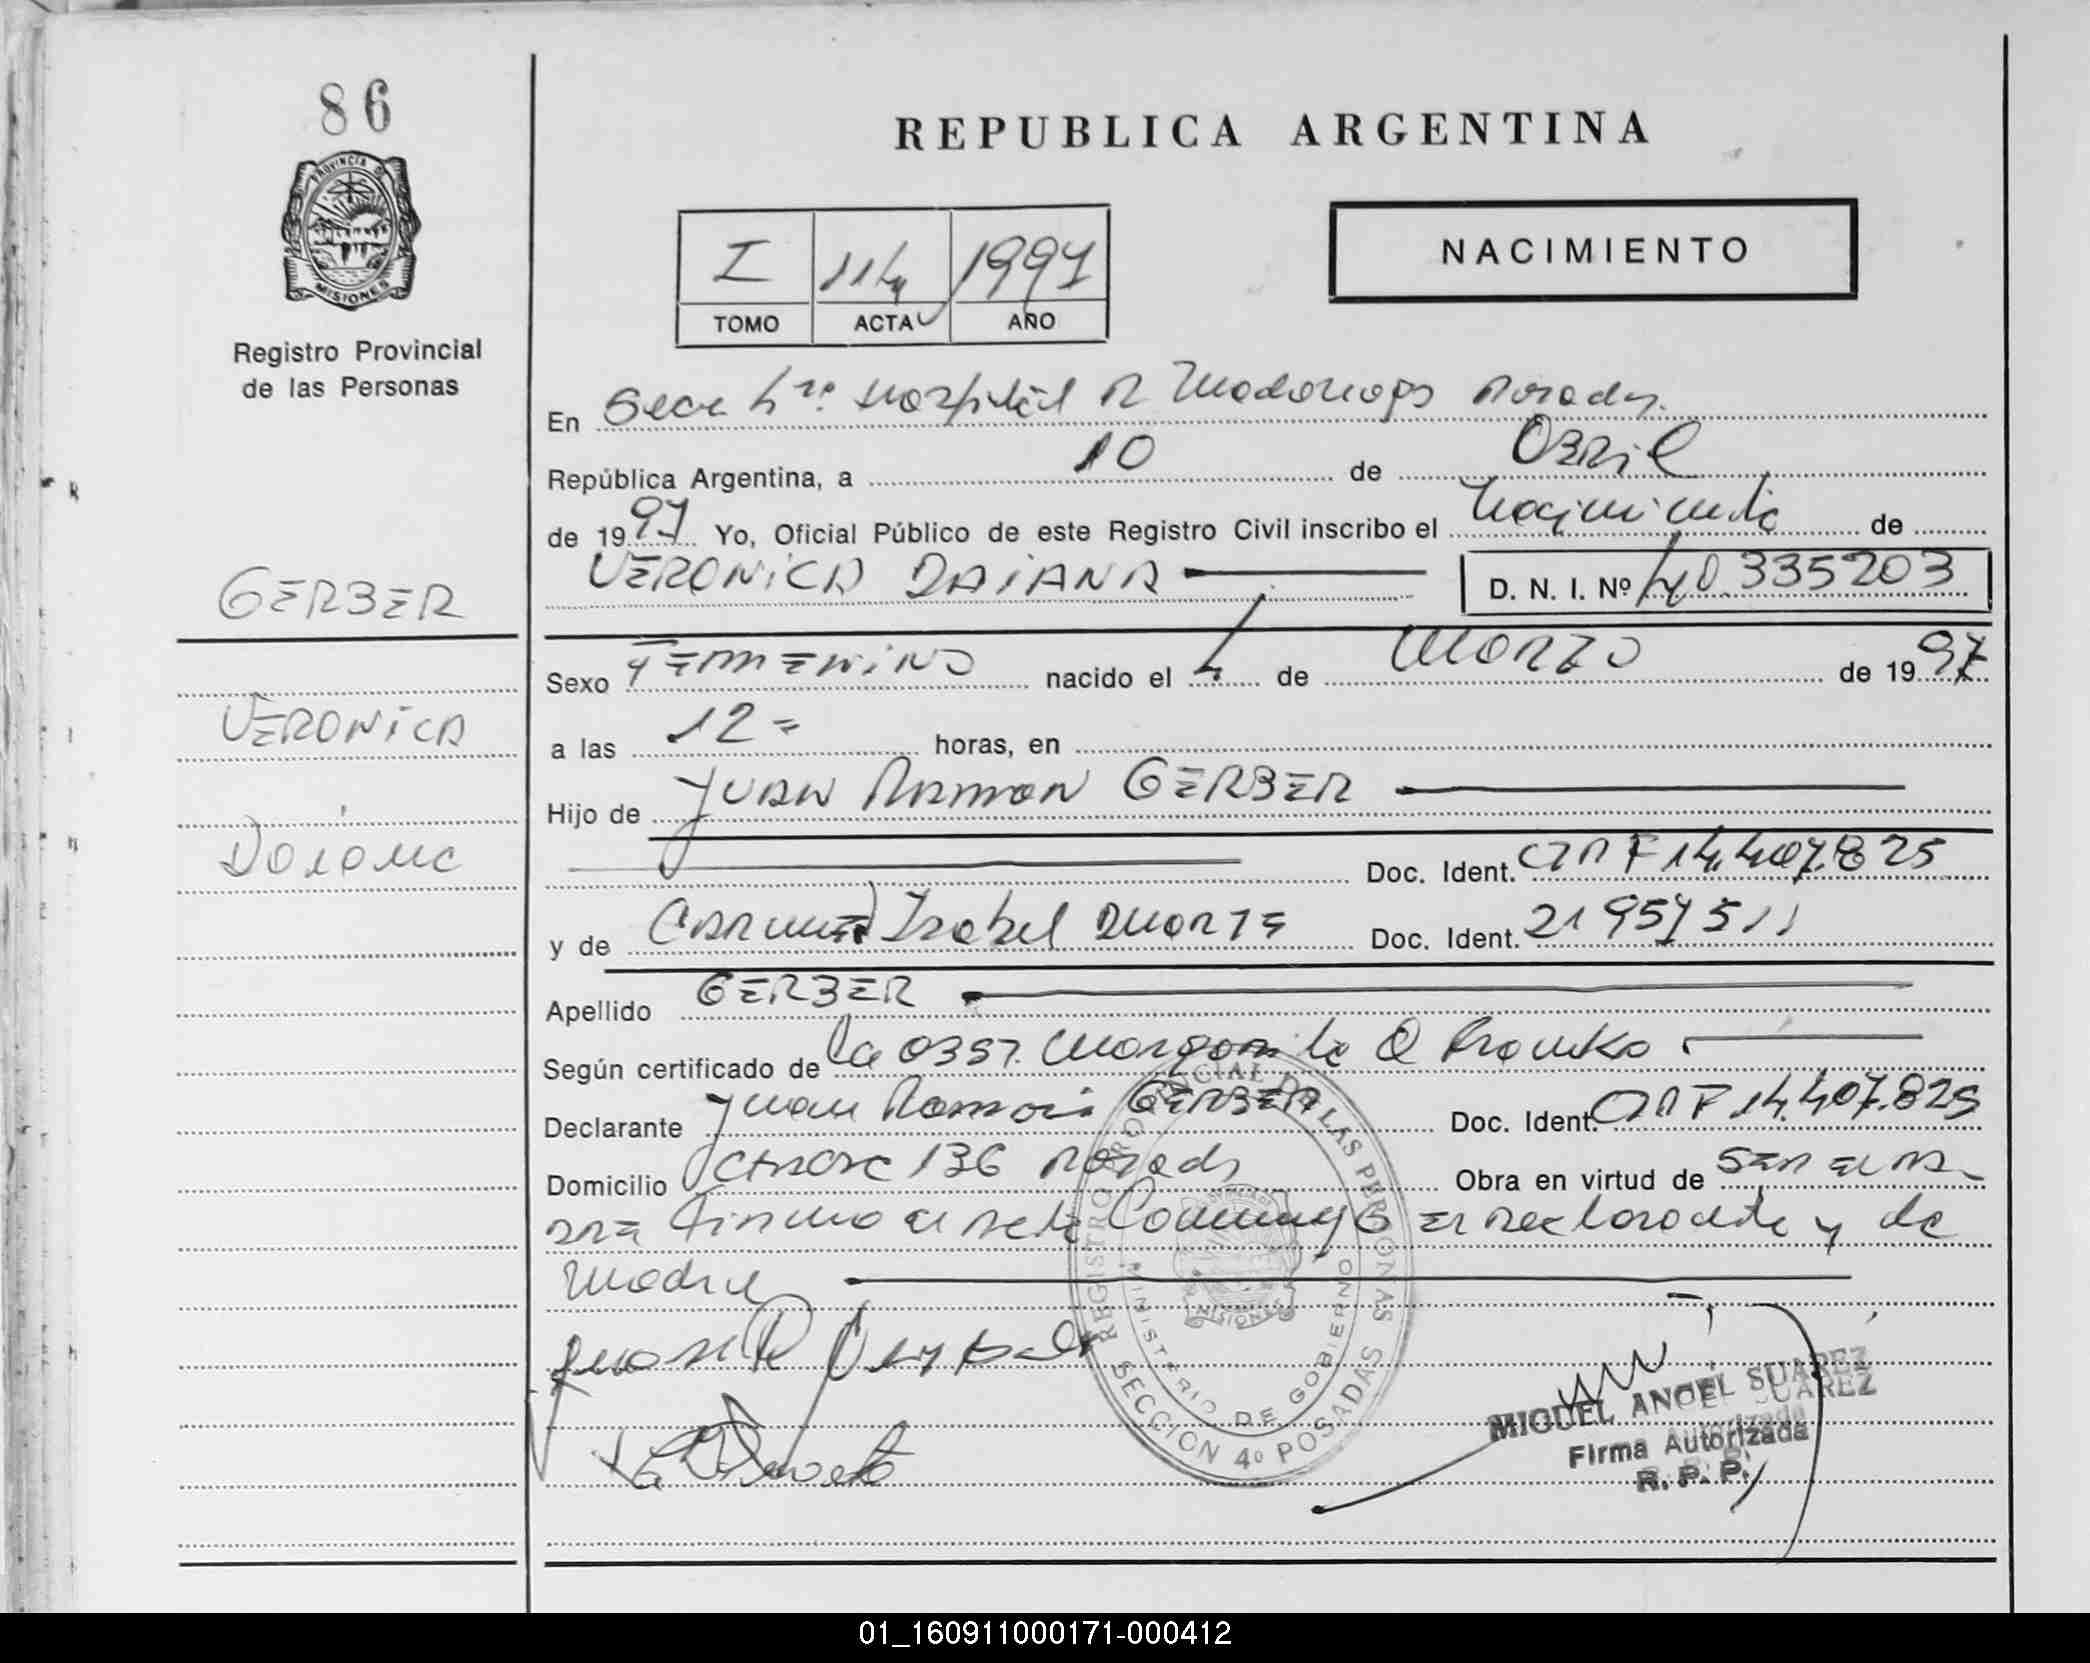 86
PROVINCIA DE
MISIONES
Registro Provincial
de las Personas
GERBER
VERONICA
Daiana
REPUBLICA ARGENTINA
I 114 1997
TOMO ACTA AÑO
NACIMIENTO
En Secc 4ta. Hospital R Madariaga Posadas
República Argentina, a 10 de Abril
de 1997 Yo, Oficial Público de este Registro Civil inscribo el Nacimiento de
VERONICA DAIANA D. N. I. Nº 40.335203
Sexo FEMENINO nacido el 4 de Marzo de 1997
a las 12= horas, en
Hijo de JUAN RAMON GERBER
Doc. Ident. 14.407.825
y de CARMEN Isabel Duarte Doc. Ident. 21957511
Apellido GERBER
Según certificado de la OBST. Margarita
Declarante Juan Ramon GERBER Doc. Ident. 14.407.825
Domicilio 136 Posadas Obra en virtud de SER EL PA-
DRE Firma el acta Conmigo El declarante y la
Madre
REGISTRO PROVINCIAL DE LAS PERSONAS
MINISTERIO DE GOBIERNO
MISIONES
SECCION 4º POSADAS
MIGUEL ANGEL SUAREZ
Firma Autorizada
R. P. P.
01_160911000171-000412